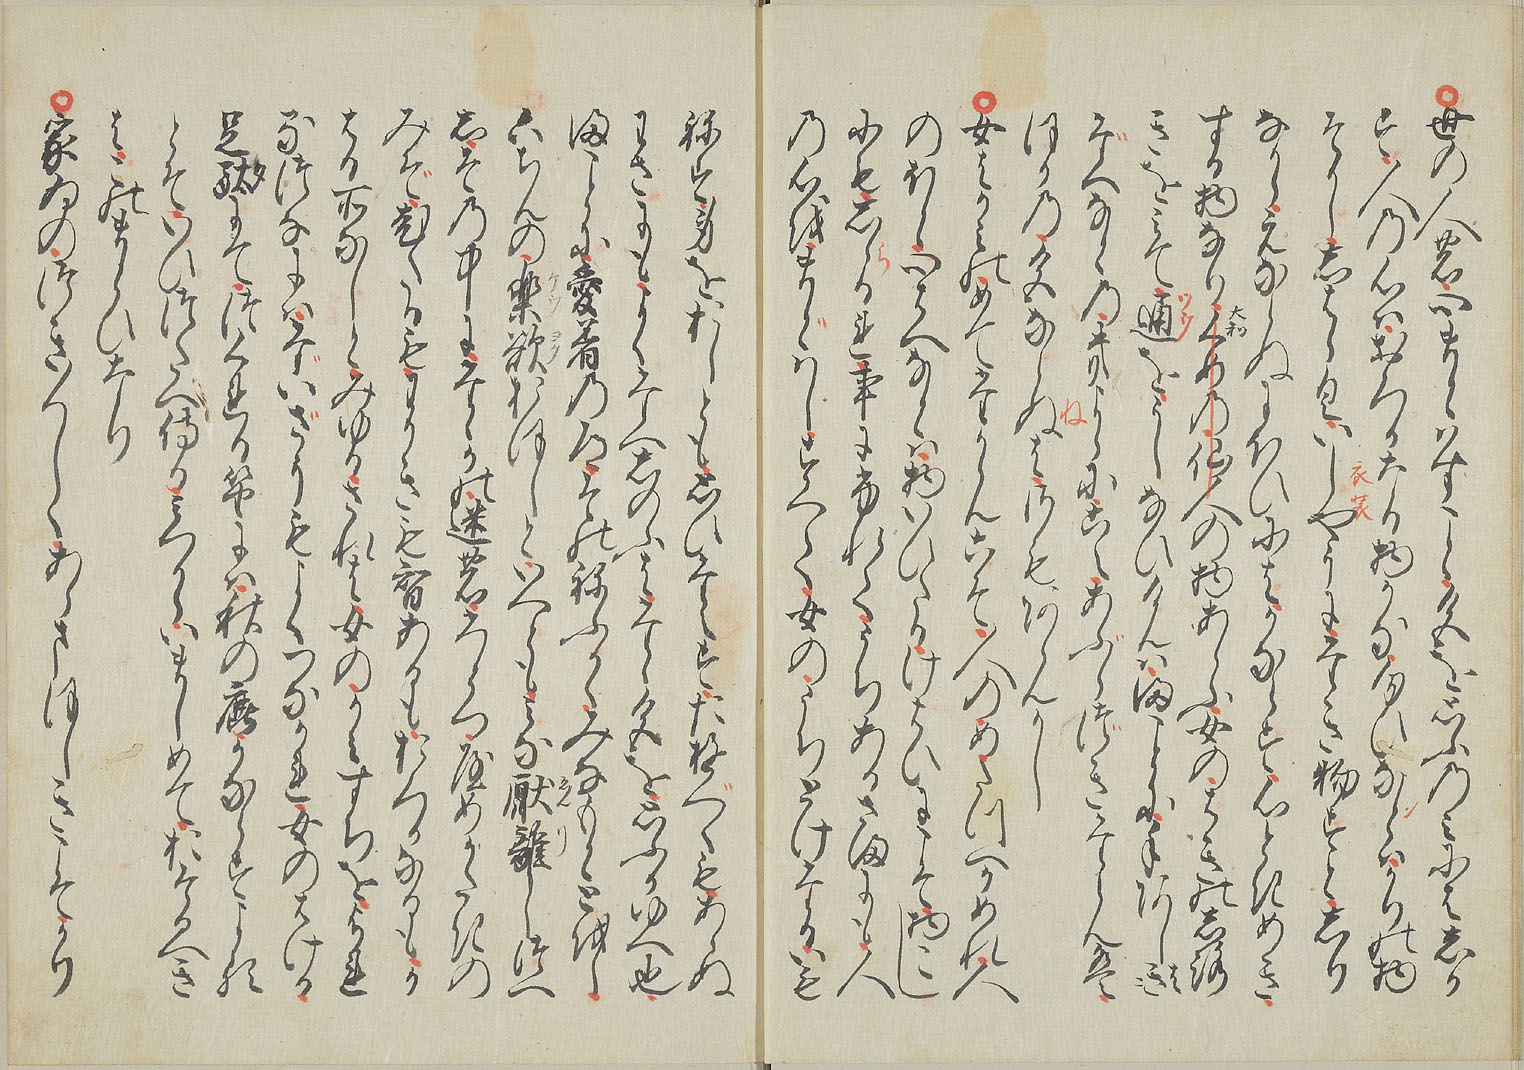 世の人の心まどはす事色欲にはしか
ず人の心はおろかなる物かなにほひなどはかりの物
ぞかししばらくいしやうにたき物すとしり
ながらえならぬにほひにはかならず心ときめき
する物なり久米の仙人の物あらふ女のはぎのしろ
きをみて通をうしなひけんはまことに手あしはだ
へなどのきよらにこえあぶらづきたらんは
ほかの色ならねばさもあらんかし
女はかみのめでたからんこそ人のめたつべかめれ人
のほど心ばへなどは物いひたるけはひにこそ物ごし
にもしらるれ事にふれてうちあるさまにも人
の心をまどはしすべて女のうちとけたるいも
ねず身をおしともおもひたらずたゆべくもあらぬ
わざにもよくたへしのぶはただ色をおもふがゆへ也
まことに愛着の道そのねふかくみなもととをし
六ぢんの楽欲おほしといへどもみな厭離しつべ
しその中にたゞかの迷ひのひとつやめがたきの
みぞおいたるもわかきも智あるもおろかなるもか
はる所なしとみゆるされば女のかみすぢをよれ
るつなには大ざうもよくつながれ女のはける
足駄にてつくれる笛には秋の鹿かならずよる
とぞいひつたへ侍るみづからいましめておそるべき
はこのまどひなり
家ゐのつきづきしくあらまほしきこそかり